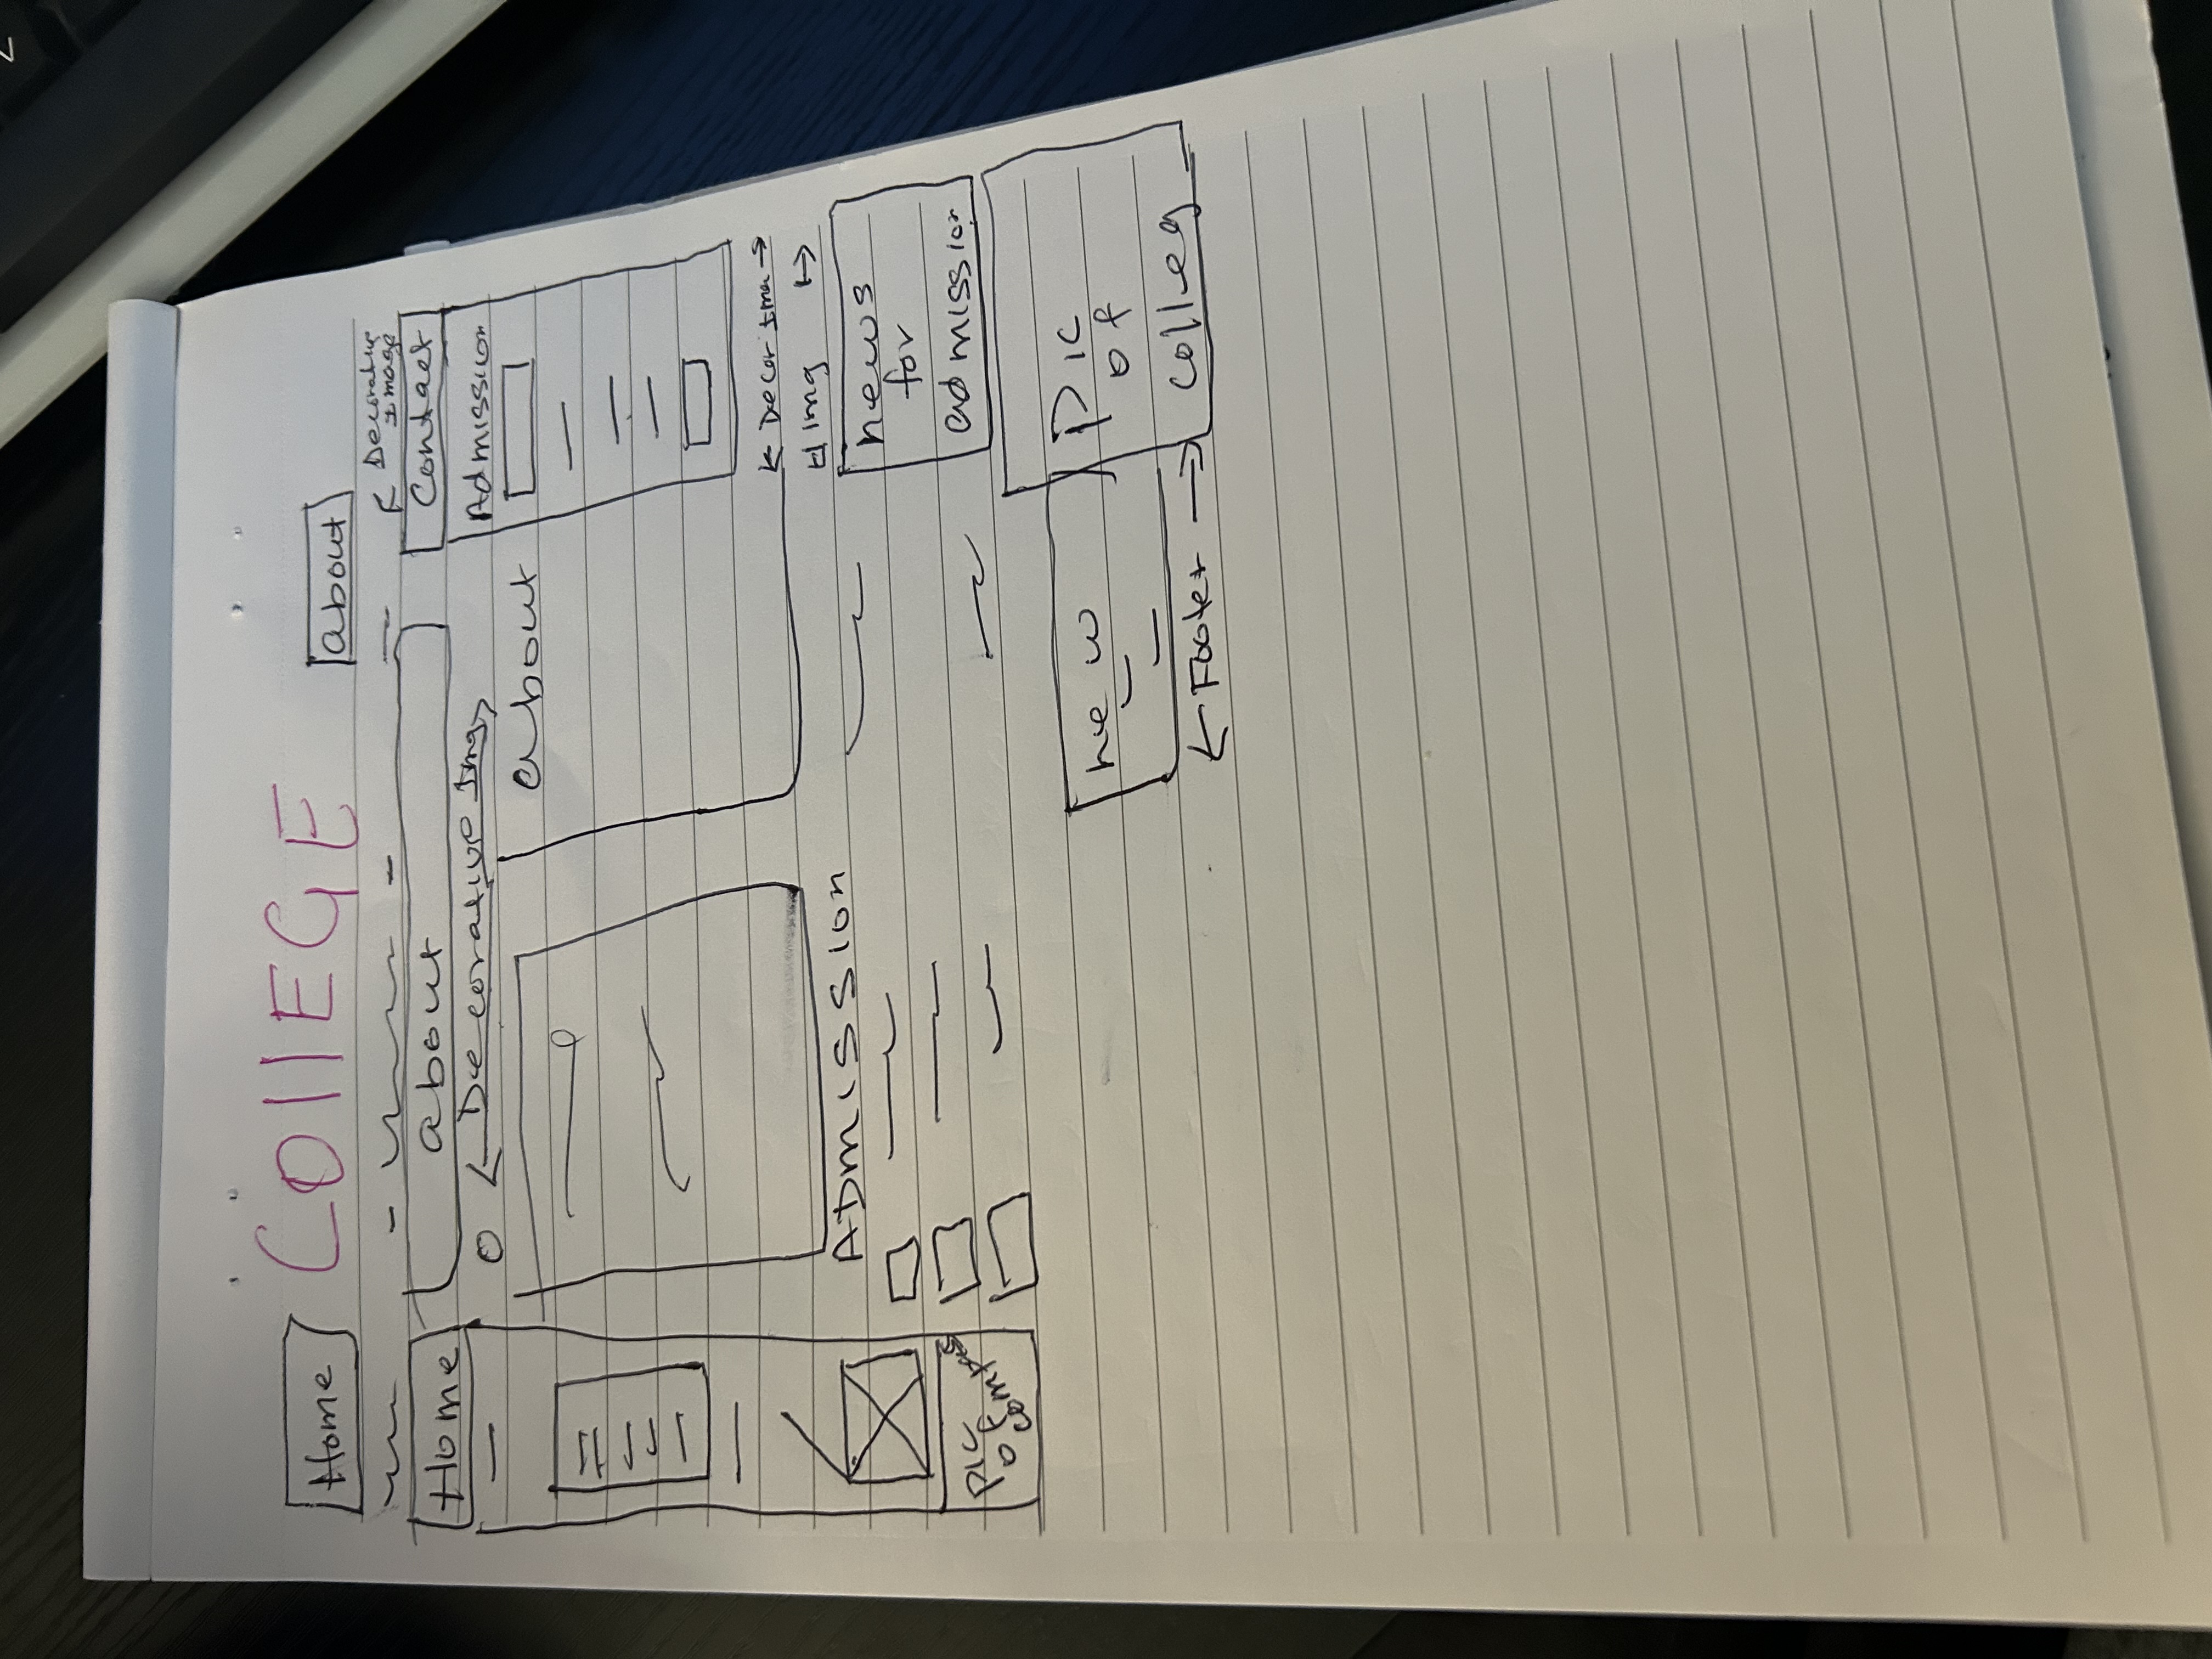 Home COllEGE about
Decorative Image
Home about Contact
Decorative Img
Admission
about
Decor Ima
Img
ADmission
news
for
admission
Pic
of
compass
new
Pic
of
colleg
Footer